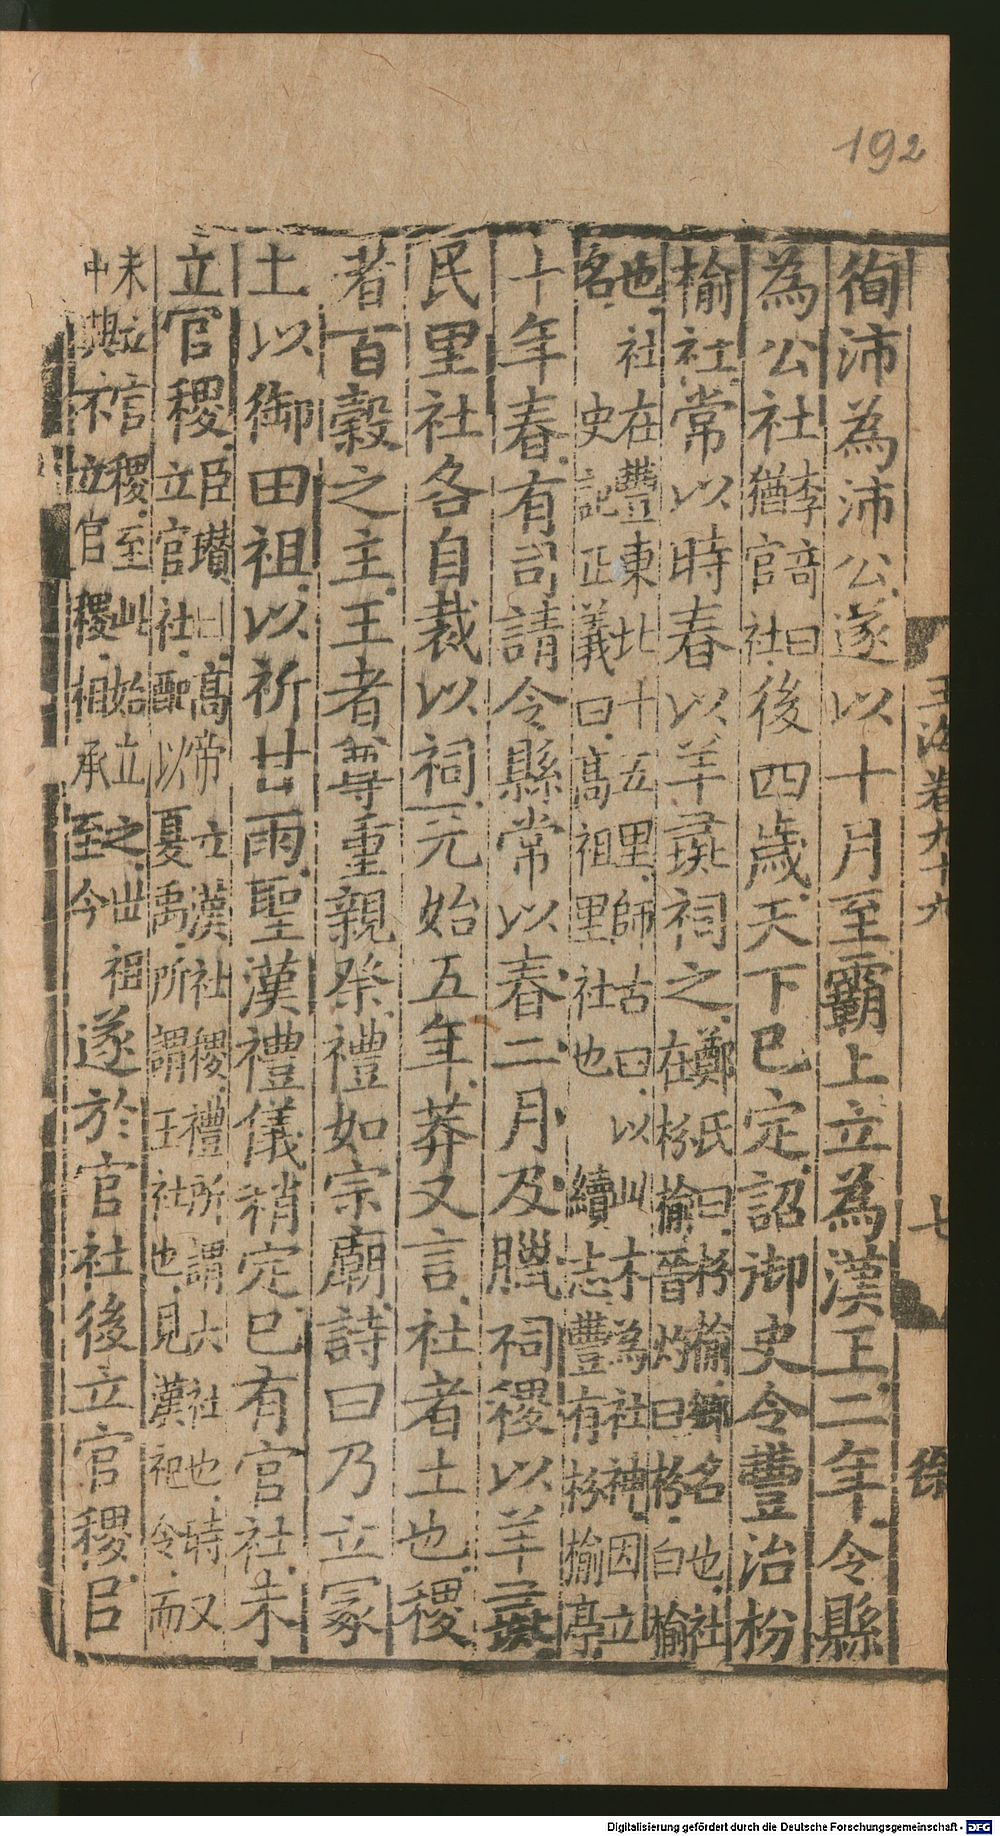 192
玉海卷九十九
七
徐
徇沛為沛公遂以十月至霸上立為漢王二年令縣
為公社李竒曰猶官社後四歲天下已定詔御史令豐治枌
榆社常以時春以羊彘祠之鄭氏曰枌榆鄉名也社在枌榆晉灼曰枌白榆
也社在豐東北十五里師古曰以此木為社神因立名 史記正義曰高祖里社也 續志豐有枌榆亭
十年春有司請令縣常以春二月及臘祠稷以羊彘
民里社各自裁以祠元始五年莽又言社者土也稷
者百穀之主王者尊重親祭禮如宗廟詩曰乃立冢
土以御田祖以祈甘雨聖漢禮儀稍定已有官社未
立官稷臣瓚曰高帝立漢社稷禮所謂大社也時又立官社配以夏禹所謂王社也見漢祀令而
未立官稷至此始立之世祖中興不立官稷相承至今遂於官社後立官稷
Digitalisierung gefördert durch die Deutsche Forschungsgemeinschaft - DFG